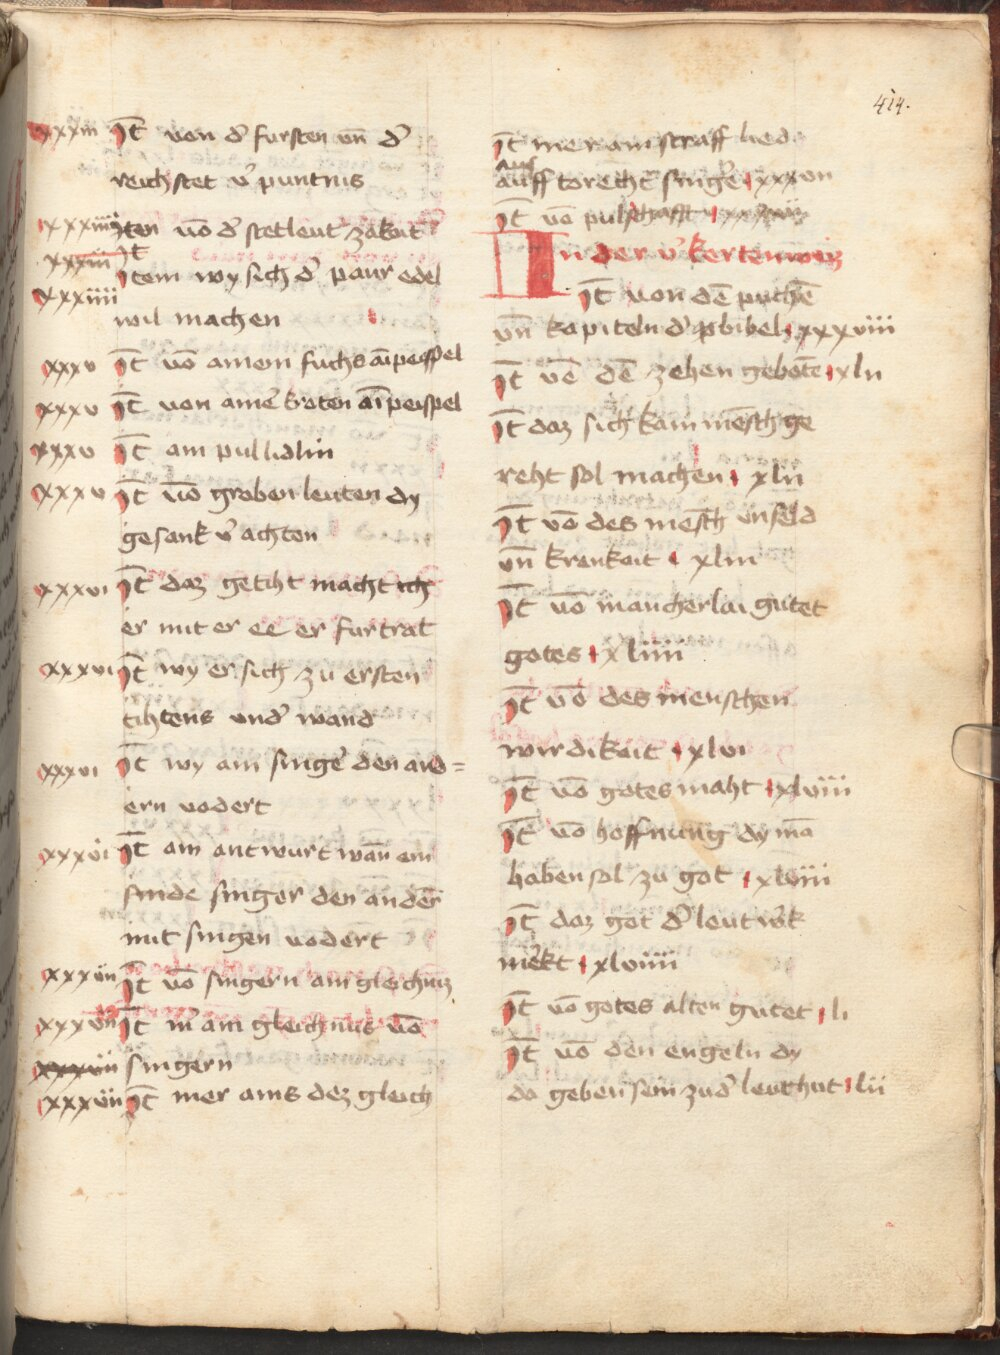 414.
xxxiii It von d' fursten vn̄ d'
reichstet v'puntnis
xxxiiii Iten vō d' stetleut zākait
xxxiii It
xxxiiii Item wy sich d' paur edel
wil machen
xxxv It vō amem fuchs ai peispel
xxxv It von amē kroten ai peispel
xxxv It am pullidlin
xxxv It vō groben leuten dy
gesank v'achten
xxxvi It daz getiht macht ich
er mit er ee er furtrat
xxxvi It wy er sich zu ersten
tihtens vnd' wand
xxxvi It wy am singe' den and=
ern vodert
xxxvi It am antwurt wān ein
sinde singer den andēr
mit singen vodert
xxxvii It vō singern am gleichnuz
xxxvii It m' am gleichnus vō
xxxvii singern
xxxvii It mer ains dez gleich
It mer am straff lied
auf
auff torecht singe' xxxvii
It vō pulschafft
In der v'kerten weiz
It von dē puchē
vn̄ kapiteln d' bibel xxxviii
It vē dē zehen gebotē xln
It daz sich kain mēsch ge
reht sol machen xlii
It vō des mēsch vnseld
vn̄ krankait xliii
It vō maucherlai gutet
gotes xliiii
It vō des menschen
wirdikait xlvi
It vō gotes maht xlviii
It vō hoffnung dy mā
haben sol zu got xlviii
It daz got d' leut w'k
m'ekt xlviiii
It vō gotes alten gutet li
It vō den engeln dy
da geben sein zu d' leut hut lii